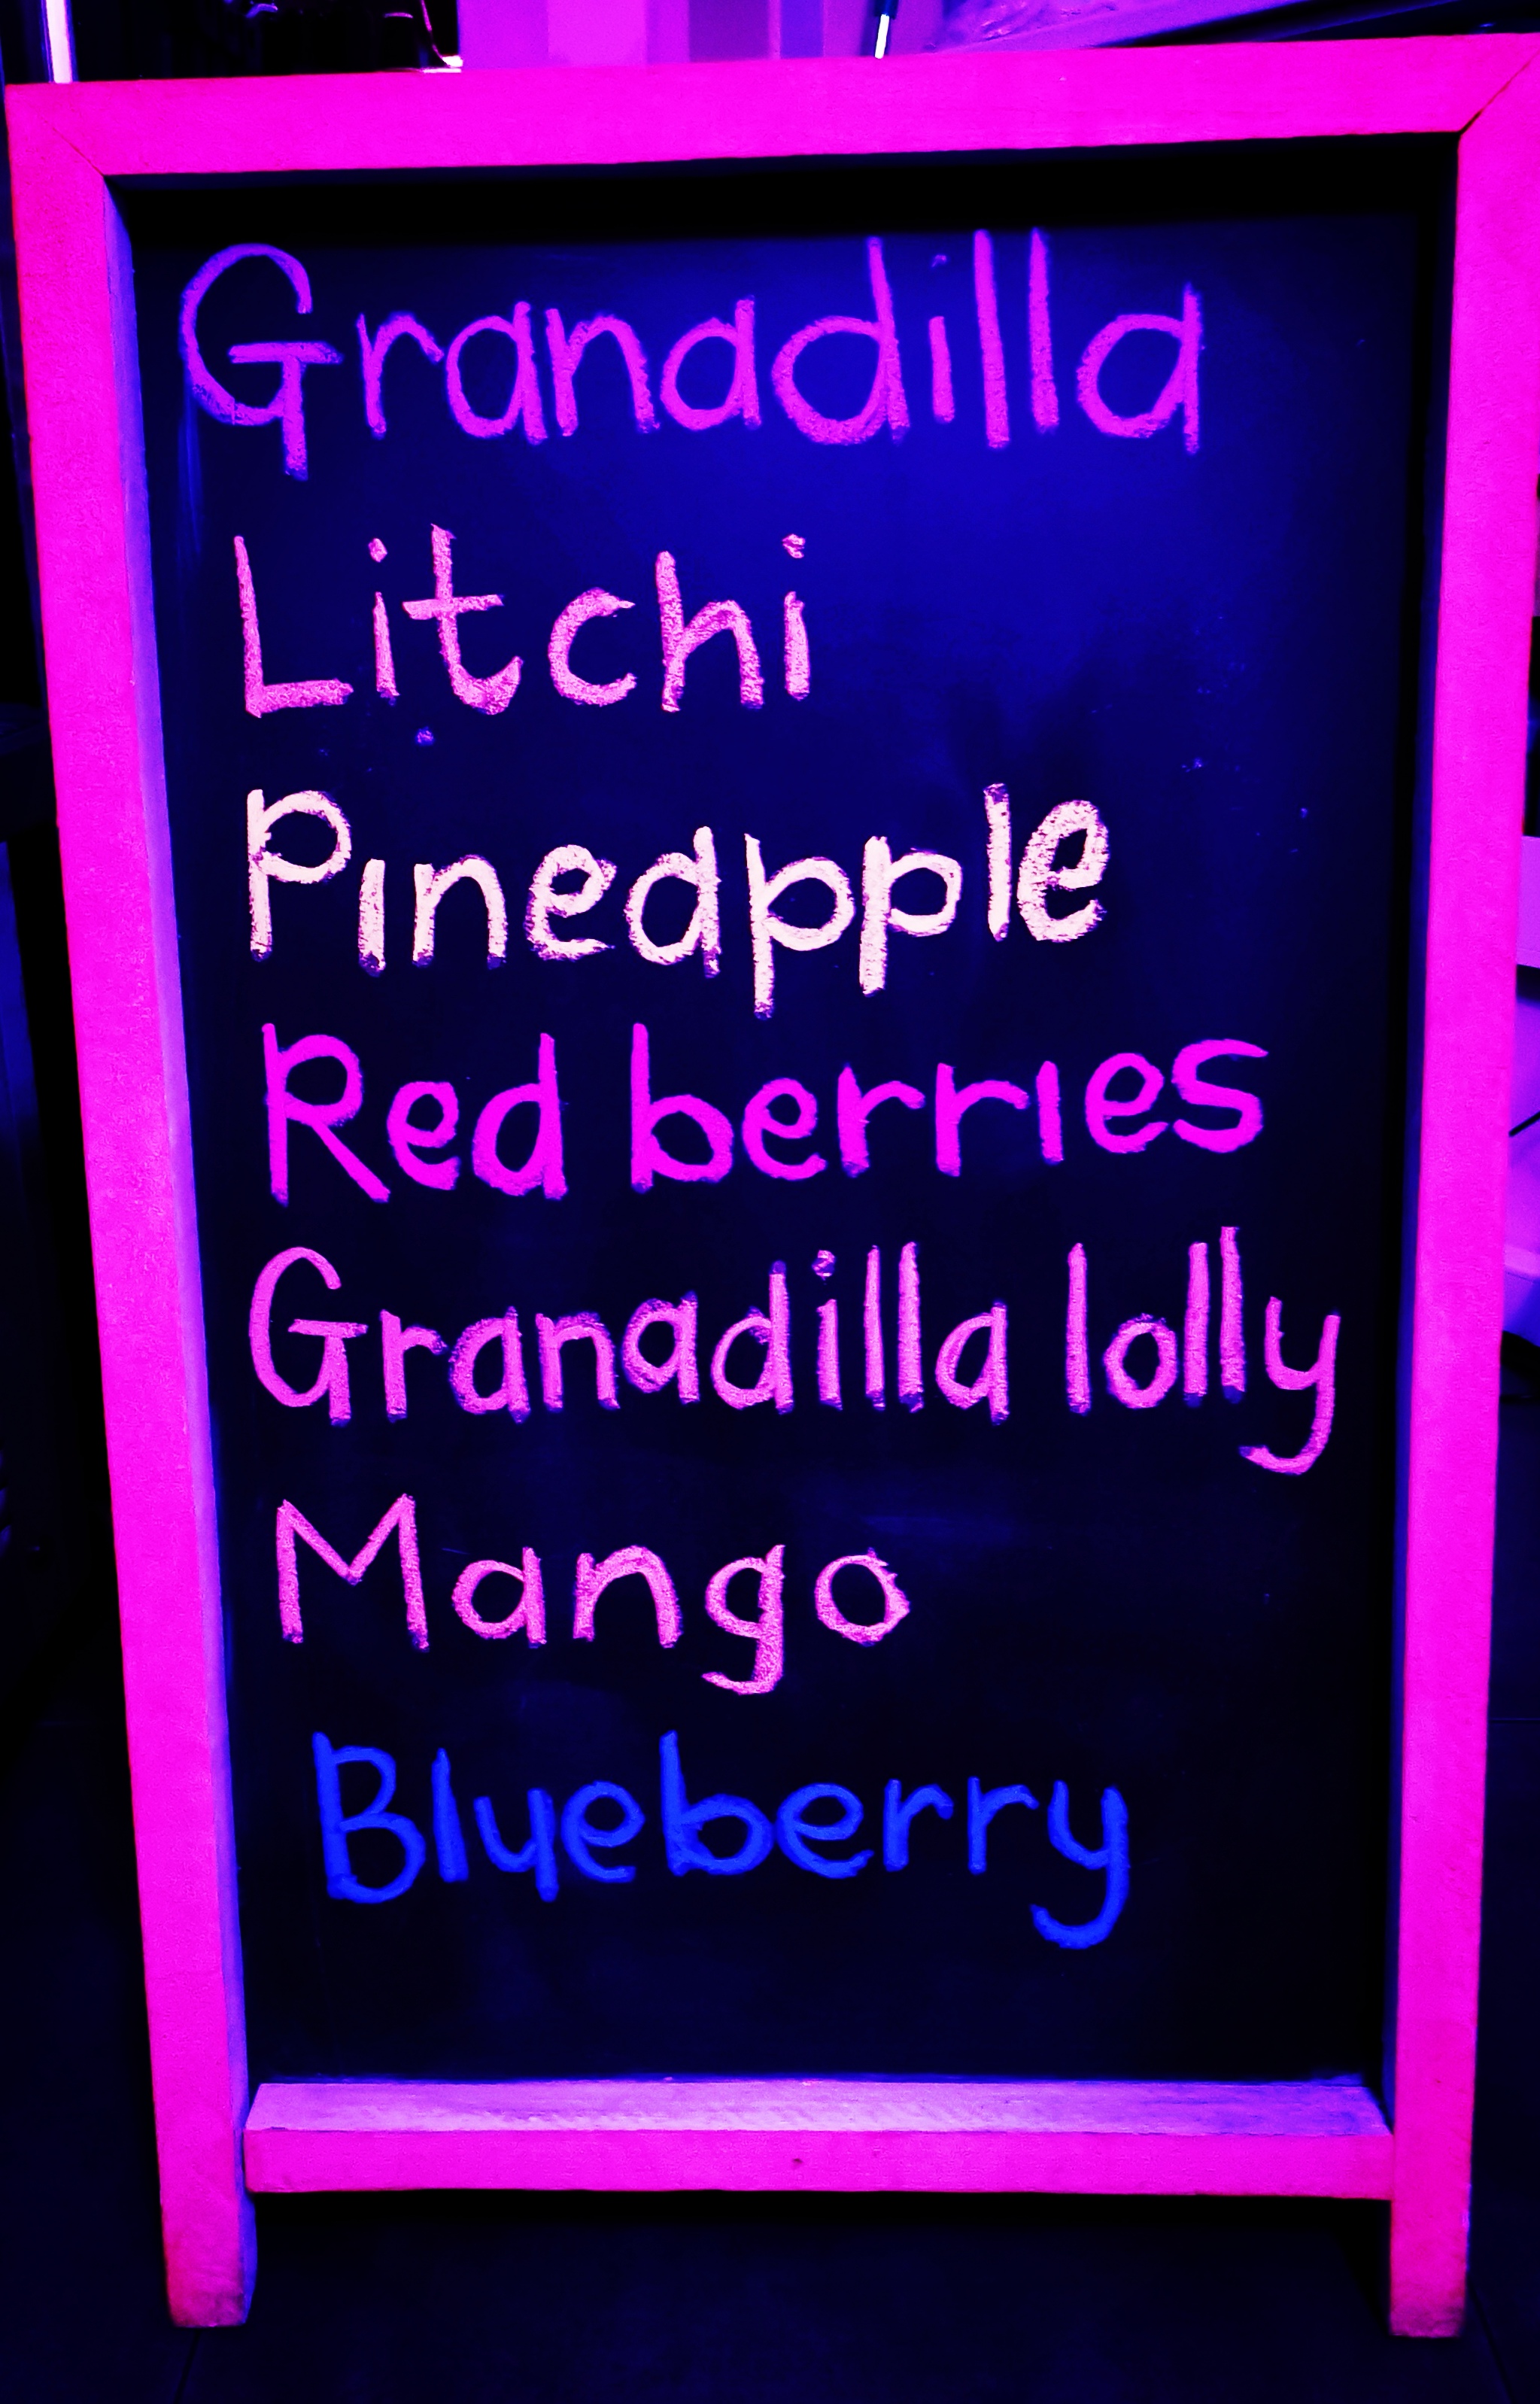 Granadilla
Litchi
Pineapple
Red berries
Granadilla lolly
Mango
Blueberry